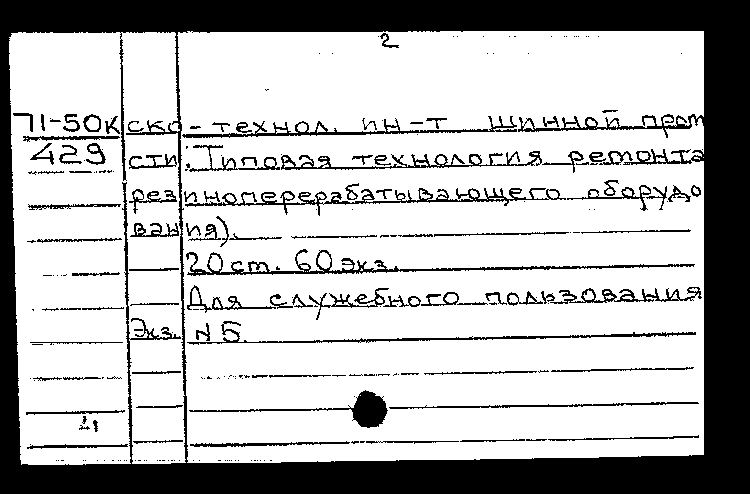 2
71-50к ско-технол. ин-т шинной пром
429 сти. Типовая технология ремонта
резиноперерабатывающего оборудо
вания).
20 ст. 60 экз.
Для служебного пользования
Экз. N 5.